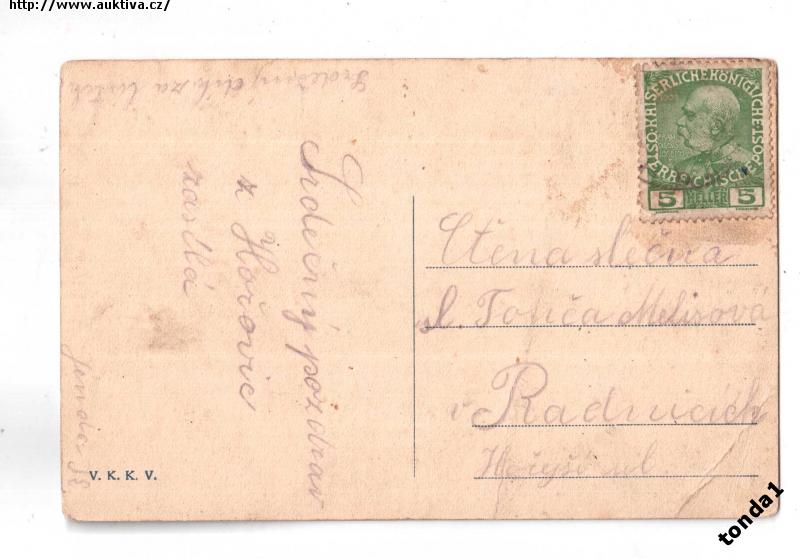 http://www.auktiva.cz/
Srdečný dík za lístek
Srdečný pozdrav
z Hořovic
zasílá
Jenda
V. K. K. V.
KAISERLICHE KÖNIGLICHE
ÖSTERREICHISCHE POST
5 HELLER 5
Ctěná slečna
sl. Tonča Melisová
v Radnicích
tonda1